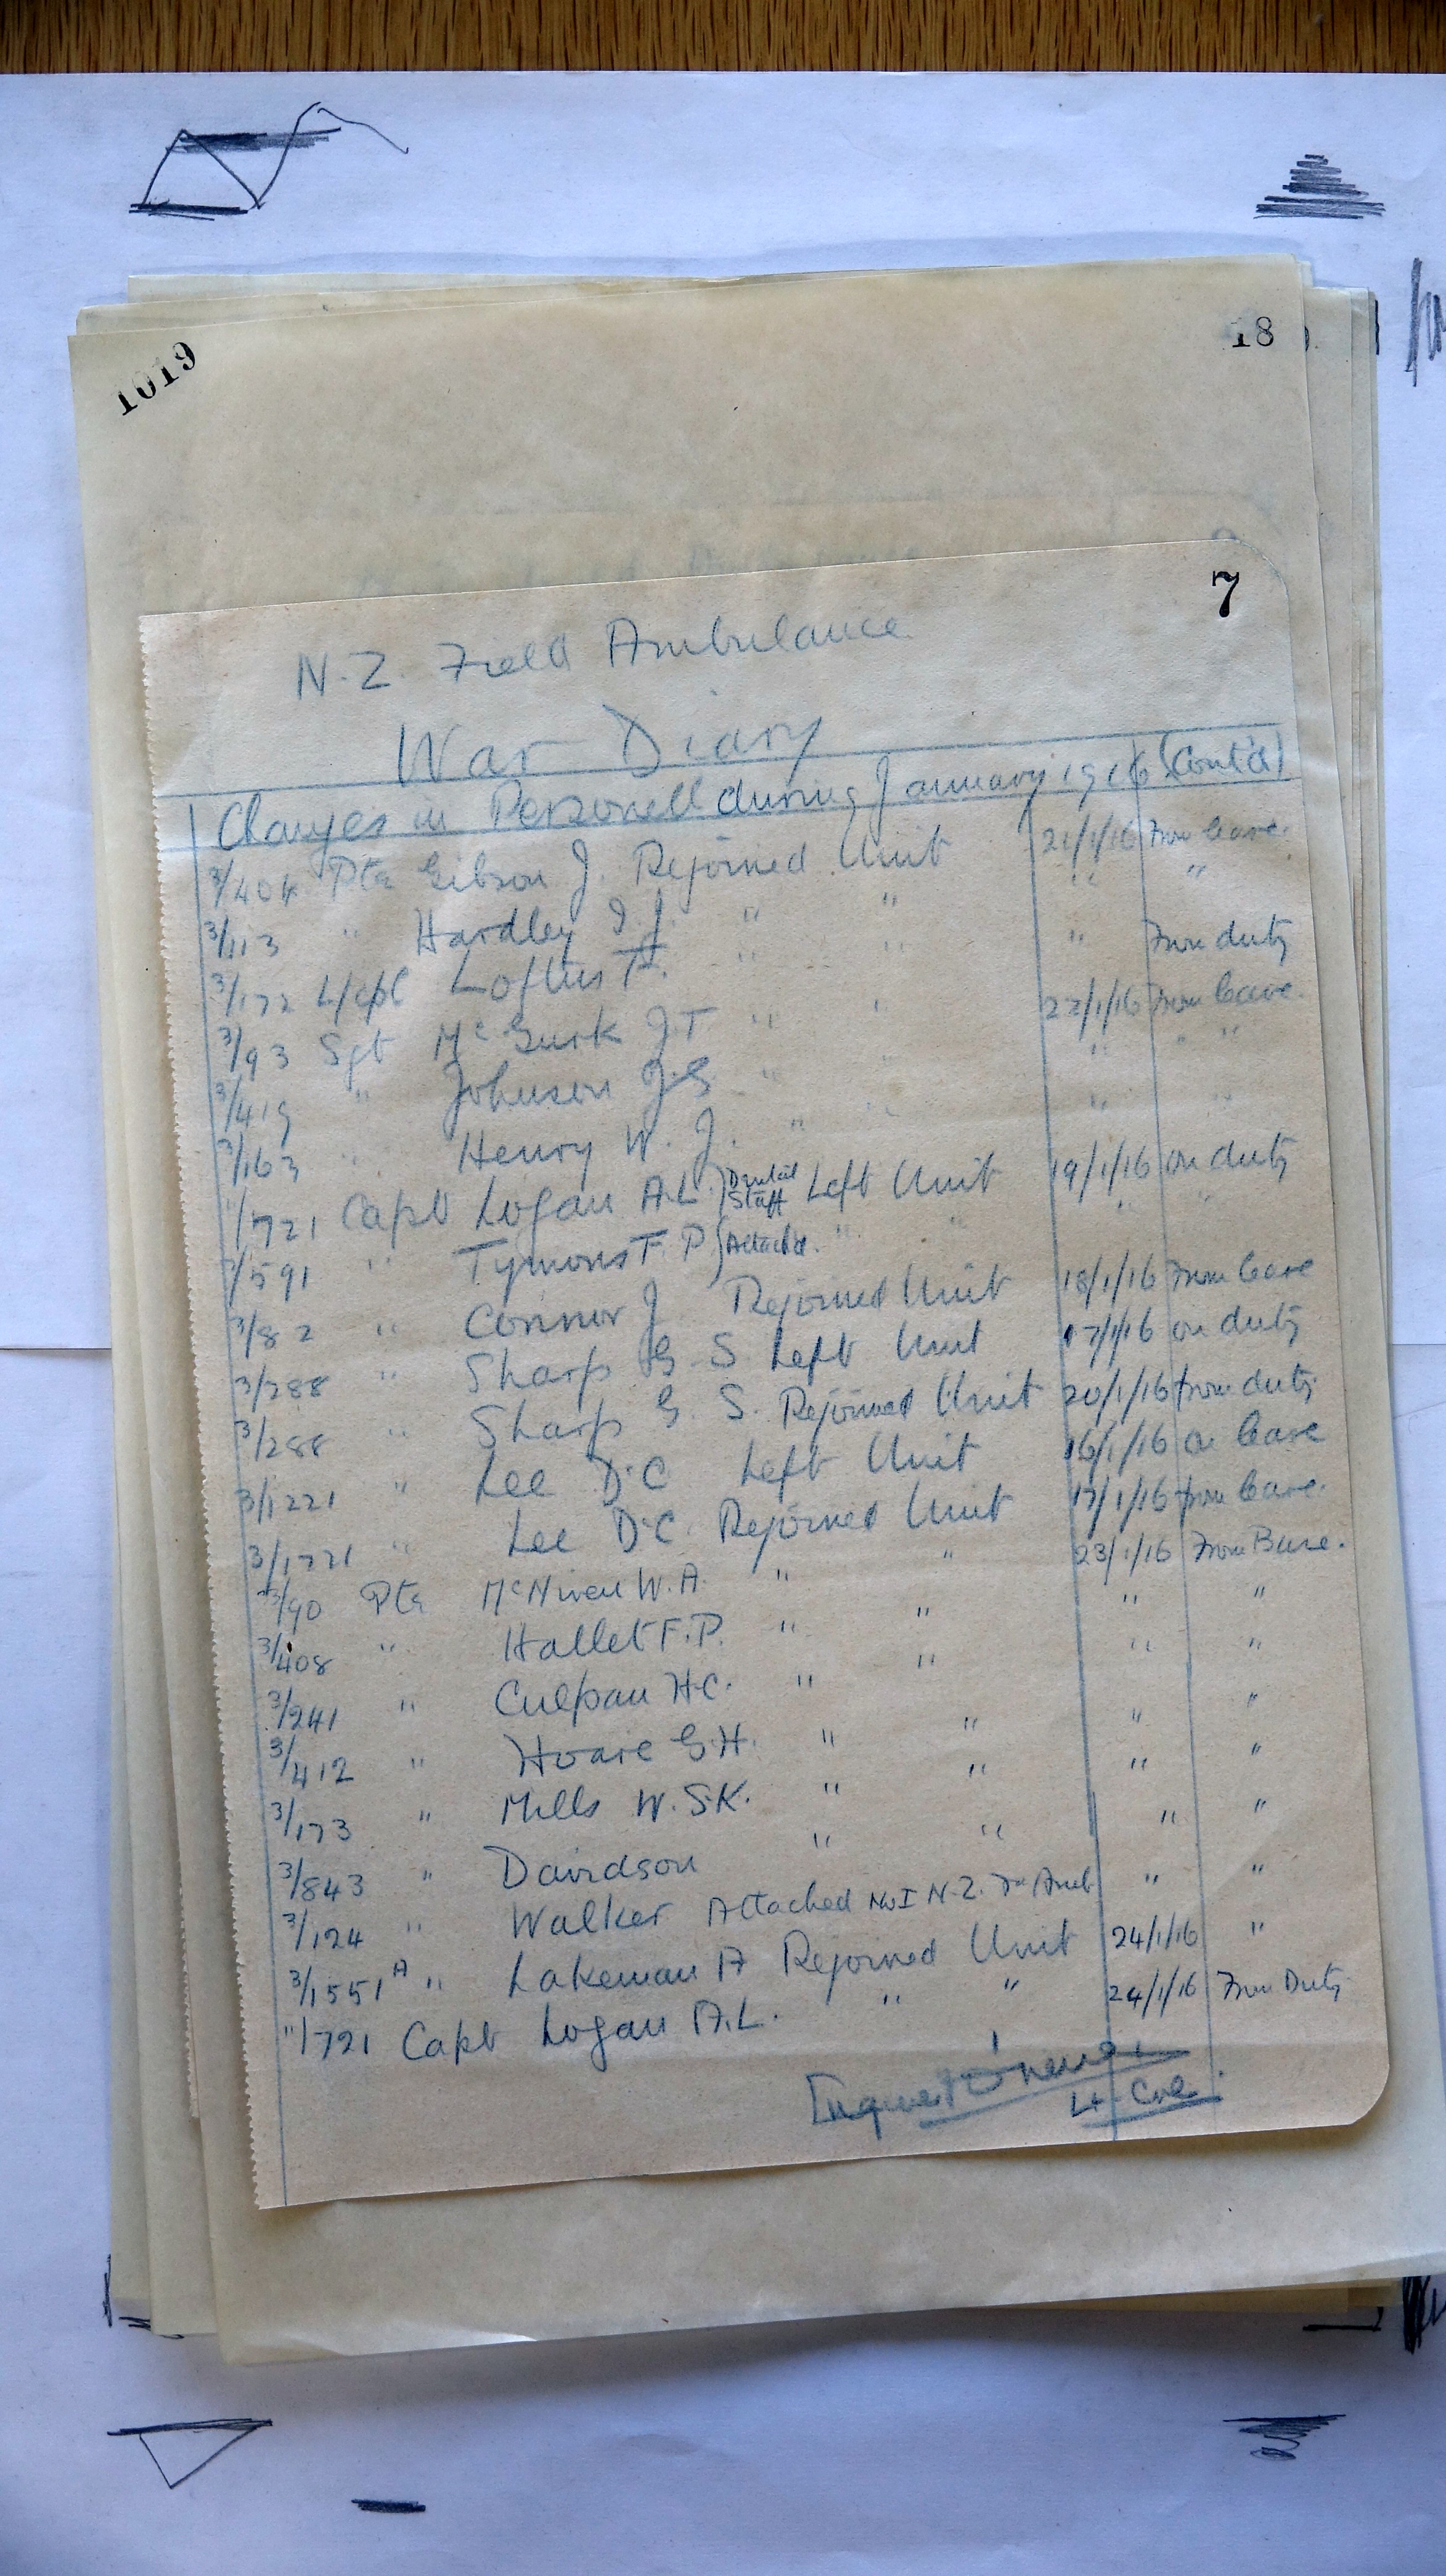 1019
18
7
N.Z. Field Ambulance
War Diary
Changes in Personell during January 1916 (Cont'd)
3/404 Pte Gibson J. Rejoined Unit 21/1/16 From leave.
3/113 " Hardley I J. " " " "
3/172 L/cpl Loftus F. " " " From duty
3/93 Sgt McGurk J.T " " 22/1/16 From leave.
3/419 " Johnson J.G " " " " "
3/163 " Henry W. J. " " " "
/1721 Capt Logan A.L. Dental Staff Left Unit 19/1/16 on duty
/591 " Tymons F P Attach'd. " " " "
3/82 " Connor J Rejoined Unit 18/1/16 From leave
3/288 " Sharp G S Left Unit 17/1/16 on duty
3/288 " Sharp G. S. Rejoined Unit 20/1/16 from duty
3/1221 " Lee D.C Left Unit 16/1/16 on leave
3/1221 " Lee D.C. Rejoined Unit 17/1/16 from leave.
3/90 Pte McNiven W.A. " " 23/1/16 From Base.
3/408 " Hallet F.P. " " " "
3/241 " Culpan H.C. " " " "
3/412 " Hoare G.H. " " " "
3/173 " Mills W.S.K. " " " "
3/843 " Davidson " " " "
3/124 " Walker Attached No I N.Z. Fd Amb " "
3/1551A " Lakeman A Rejoined Unit 24/1/16 "
11/721 Capt Logan A.L. " " 24/1/16 From Duty
Lt-Col.